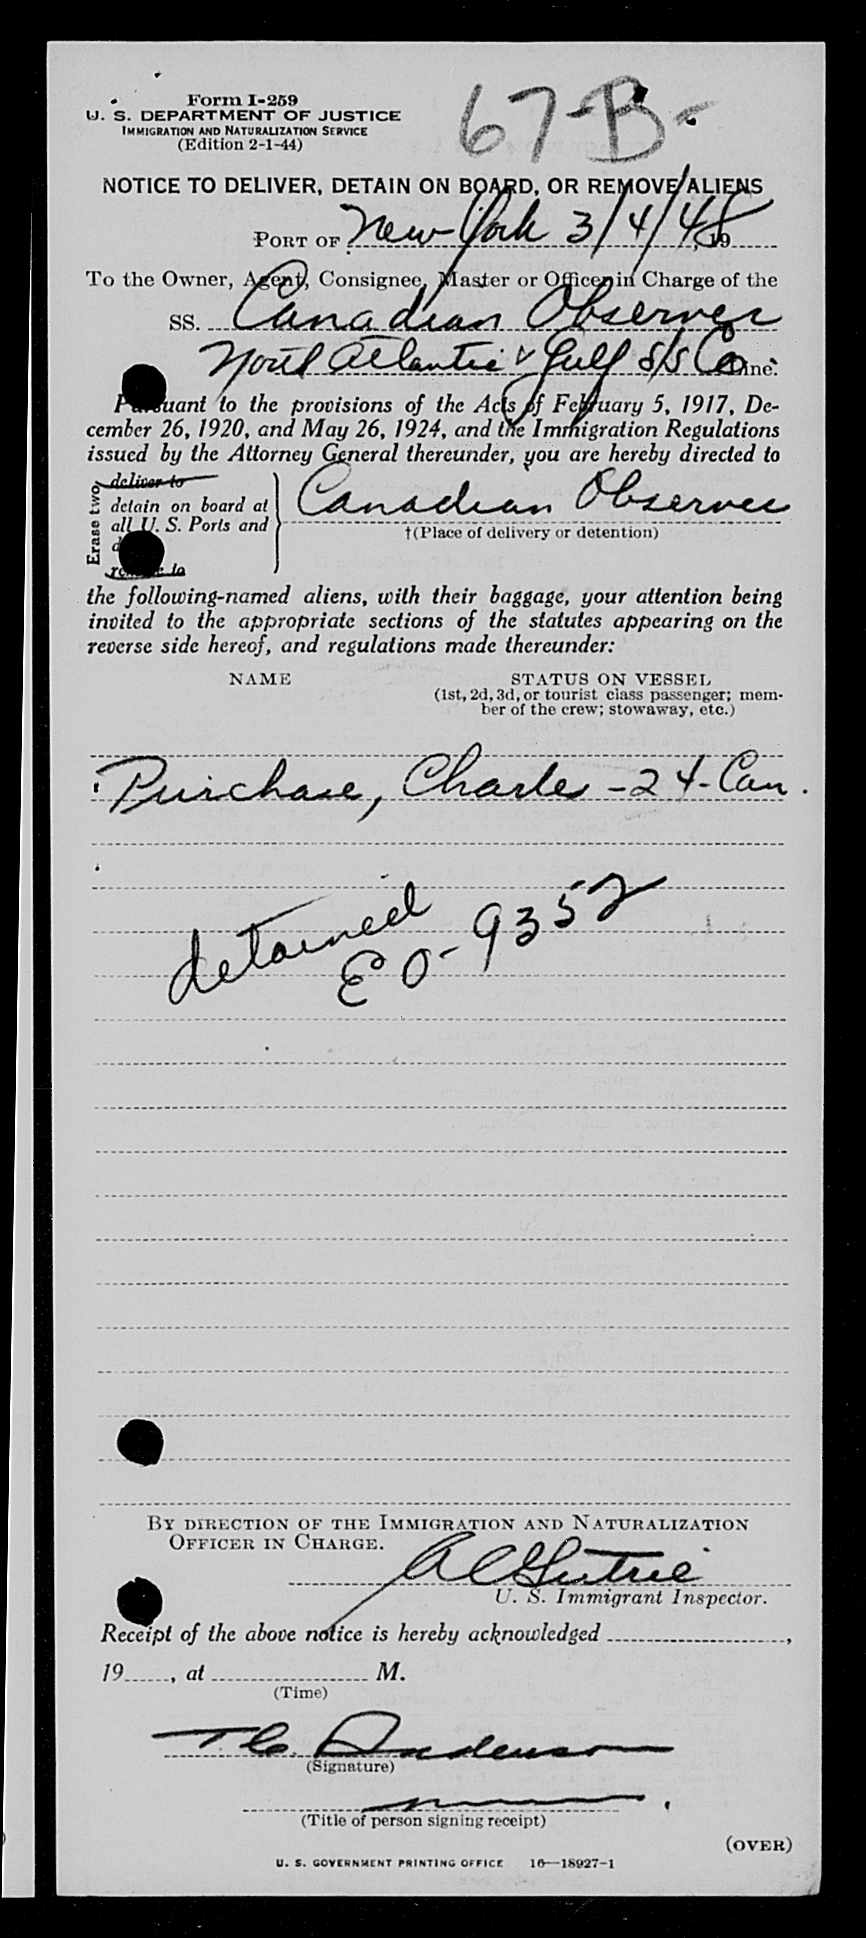 Form I-259
U. S. DEPARTMENT OF JUSTICE
IMMIGRATION AND NATURALIZATION SERVICE
(Edition 2-1-44)
67-B-
NOTICE TO DELIVER, DETAIN ON BOARD, OR REMOVE ALIENS
PORT OF New York 3/4/48, 19
To the Owner, Agent, Consignee, Master or Officer in Charge of the
SS. Canadian Observer
North Atlantic & Gulf S/S Co Line.
Pursuant to the provisions of the Acts of February 5, 1917, De-
cember 26, 1920, and May 26, 1924, and the Immigration Regulations
issued by the Attorney General thereunder, you are hereby directed to
Erase two
deliver to
detain on board at
all U. S. Ports and
remove to
Canadian Observer
†(Place of delivery or detention)
the following-named aliens, with their baggage, your attention being
invited to the appropriate sections of the statutes appearing on the
reverse side hereof, and regulations made thereunder:
NAME
STATUS ON VESSEL
(1st, 2d, 3d, or tourist class passenger; mem-
ber of the crew; stowaway, etc.)
Purchase, Charles - 24 - Can.
detained
EO - 9352
BY DIRECTION OF THE IMMIGRATION AND NATURALIZATION
OFFICER IN CHARGE.
A C Gutrie
U. S. Immigrant Inspector.
Receipt of the above notice is hereby acknowledged ,
19 , at M.
(Time)
T. C. Anderson
(Signature)
(Title of person signing receipt)
(OVER)
U. S. GOVERNMENT PRINTING OFFICE 16—18927-1